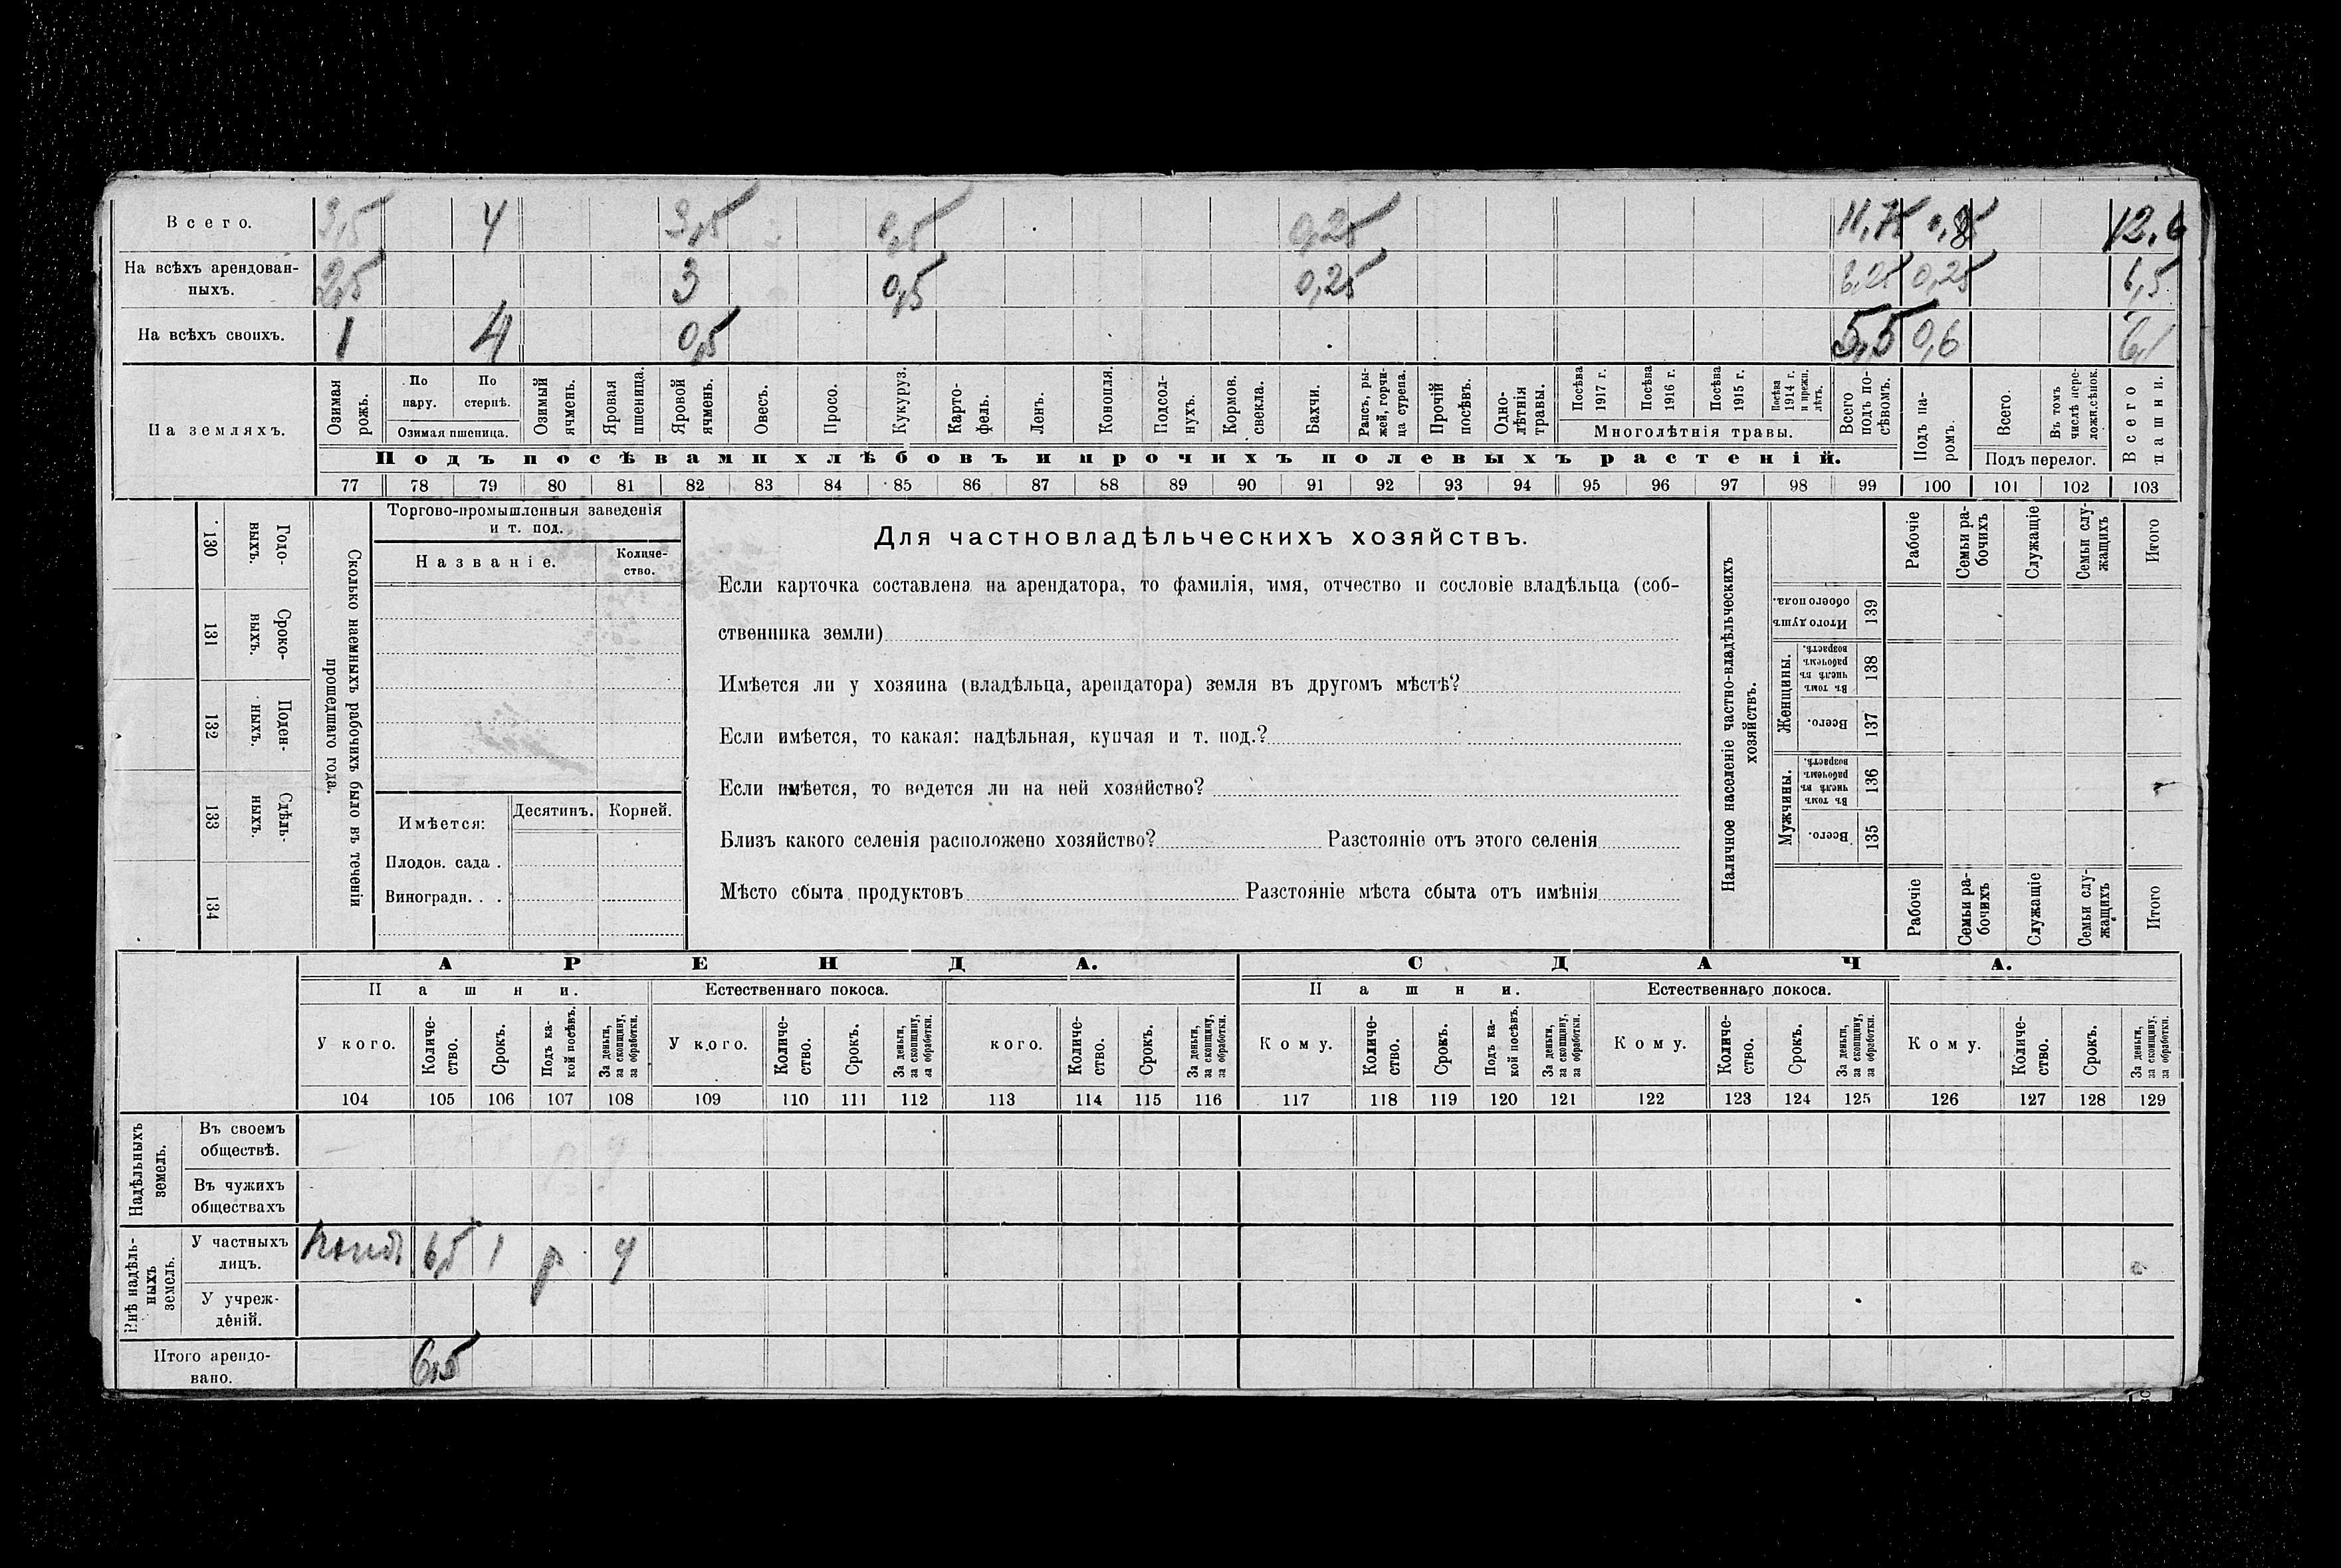 Всего. 3,5 4 3,5 0,5 0,25 11,75 0,85 12,6
На всѣхъ арендован-
ныхъ. 2,5 3 0,5 0,25 6,25 0,25 6,5
На всѣхъ своихъ. 1 4 0,5 5,5 0,6 6,1
На земляхъ.
Озимая рожь.
По пару.
По стернѣ.
Озимая пшеница.
Озимый ячмень.
Яровая пшеница.
Яровой ячмень.
Овесъ.
Просо.
Кукуруз.
Карто-
фель.
Ленъ.
Конопля.
Подсол-
нухъ.
Кормов.
свекла.
Бахчи.
Рапсъ, ры-
жей, горчи-
ца сурепа.
Прочій
посѣвъ.
Одно-
лѣтнія
травы.
Посѣва
1917 г.
Посѣва
1916 г.
Посѣва
1915 г.
Посѣва
1914 г.
и прежн.
лѣтъ.
Многолѣтнія травы.
Всего
подъ по-
сѣвомъ.
Подъ па-
ромъ.
Всего.
Въ томъ
числѣ пере-
ложн.сѣнок.
Подъ перелог.
Всего
пашни.
Подъ посѣвами хлѣбовъ и прочихъ полевыхъ растеній.
77 78 79 80 81 82 83 84 85 86 87 88 89 90 91 92 93 94 95 96 97 98 99 100 101 102 103
130 Годо-
выхъ.
131 Сроко-
выхъ.
132 Поден-
ныхъ.
133 Сдѣль-
ныхъ.
134
Сколько наемныхъ рабочихъ было въ теченіи
прошедшаго года.
Торгово-промышленныя заведенія
и т. под.
Названіе.
Количе-
ство.
Имѣется:
Десятинъ.
Корней.
Плодов. сада .
Виноградн. . .
Для частновладѣльческихъ хозяйствъ.
Если карточка составлена на арендатора, то фамилія, имя, отчество и сословіе владѣльца (соб-
ственника земли)
Имѣется ли у хозяина (владѣльца, арендатора) земля въ другомъ мѣстѣ?
Если имѣется, то какая: надѣльная, купчая и т. под.?
Если имѣется, то ведется ли на ней хозяйство?
Близъ какого селенія расположено хозяйство? Разстояніе отъ этого селенія
Мѣсто сбыта продуктовъ Разстояніе мѣста сбыта отъ имѣнія
Наличное населеніе частно-владѣльческихъ
хозяйствъ.
Рабочіе
Семьи ра-
бочихъ
Служащіе
Семьи слу-
жащихъ
Итого
Итого душъ
обоего пола.
139
Женщины.
Въ томъ
числѣ въ
рабочемъ
возрастѣ.
138
Всего.
137
Мужчины.
Въ томъ
числѣ въ
рабочемъ
возрастѣ.
136
Всего.
135
Рабочіе
Семьи ра-
бочихъ
Служащіе
Семьи слу-
жащихъ
Итого
АРЕНДА.
СДАЧА.
Пашни.
Естественнаго покоса.
Пашни.
Естественнаго покоса.
У кого.
Количе-
ство.
Срокъ.
Подъ ка-
кой посѣвъ.
За деньги,
за скопщину,
за обработки.
У кого.
Количе-
ство.
Срокъ.
За деньги,
за скопщину,
за обработки.
кого.
Количе-
ство.
Срокъ.
За деньги,
за скопщину,
за обработки.
Кому.
Количе-
ство.
Срокъ.
Подъ ка-
кой посѣвъ.
За деньги,
за скопщину,
за обработки.
Кому.
Количе-
ство.
Срокъ.
За деньги,
за скопщину,
за обработки.
Кому.
Количе-
ство.
Срокъ.
За деньги,
за скопщину,
за обработки.
104 105 106 107 108 109 110 111 112 113 114 115 116 117 118 119 120 121 122 123 124 125 126 127 128 129
Надѣльныхъ
земель.
Въ своемъ
обществѣ.
Въ чужихъ
обществахъ
Внѣ надѣль-
ныхъ
земель.
У частныхъ
лицъ. 6,5 1
У учреж-
деній.
Итого арендо-
вано. 6,5